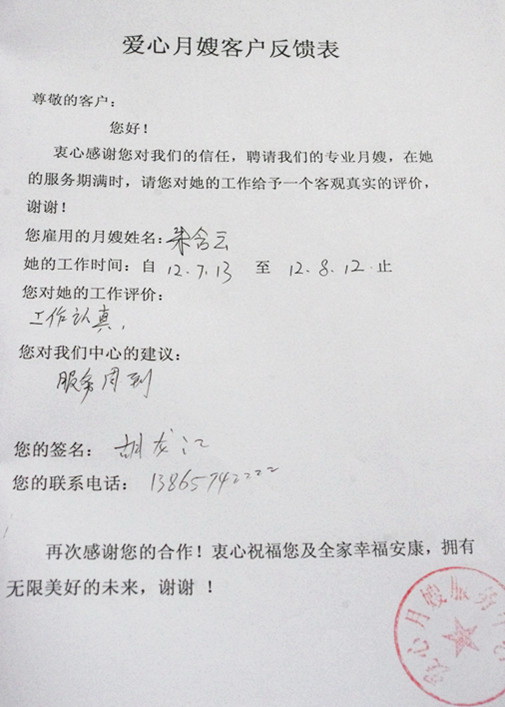 爱心月嫂客户反馈表
尊敬的客户：
您好！
衷心感谢您对我们的信任，聘请我们的专业月嫂，在她
的服务期满时，请您对她的工作给予一个客观真实的评价，
谢谢！
您雇用的月嫂姓名：朱含云
她的工作时间：自 12.7.13 至 12.8.12.止
您对她的工作评价：
工作认真，
您对我们中心的建议：
服务周到
您的签名：胡龙江
您的联系电话：13865742222
再次感谢您的合作！衷心祝福您及全家幸福安康，拥有
无限美好的未来，谢谢 ！
爱心月嫂服务中心